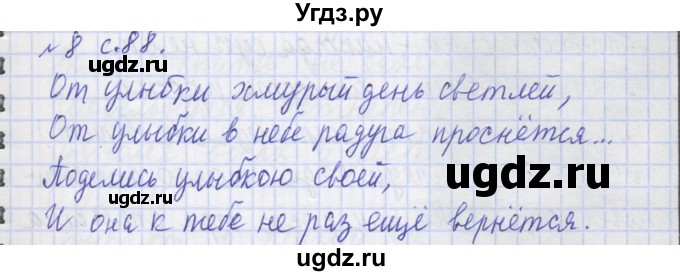 Угдз.ру
№8 с.88.
ugdz.ru
От улыбки хмурый день светлей,
ugdz.ru
От улыбки в небе радуга проснётся...
Поделись улыбкою своей,
ugdz.ru
И она к тебе не раз ещё вернётся.
ugdz.ru
ugdz.ru